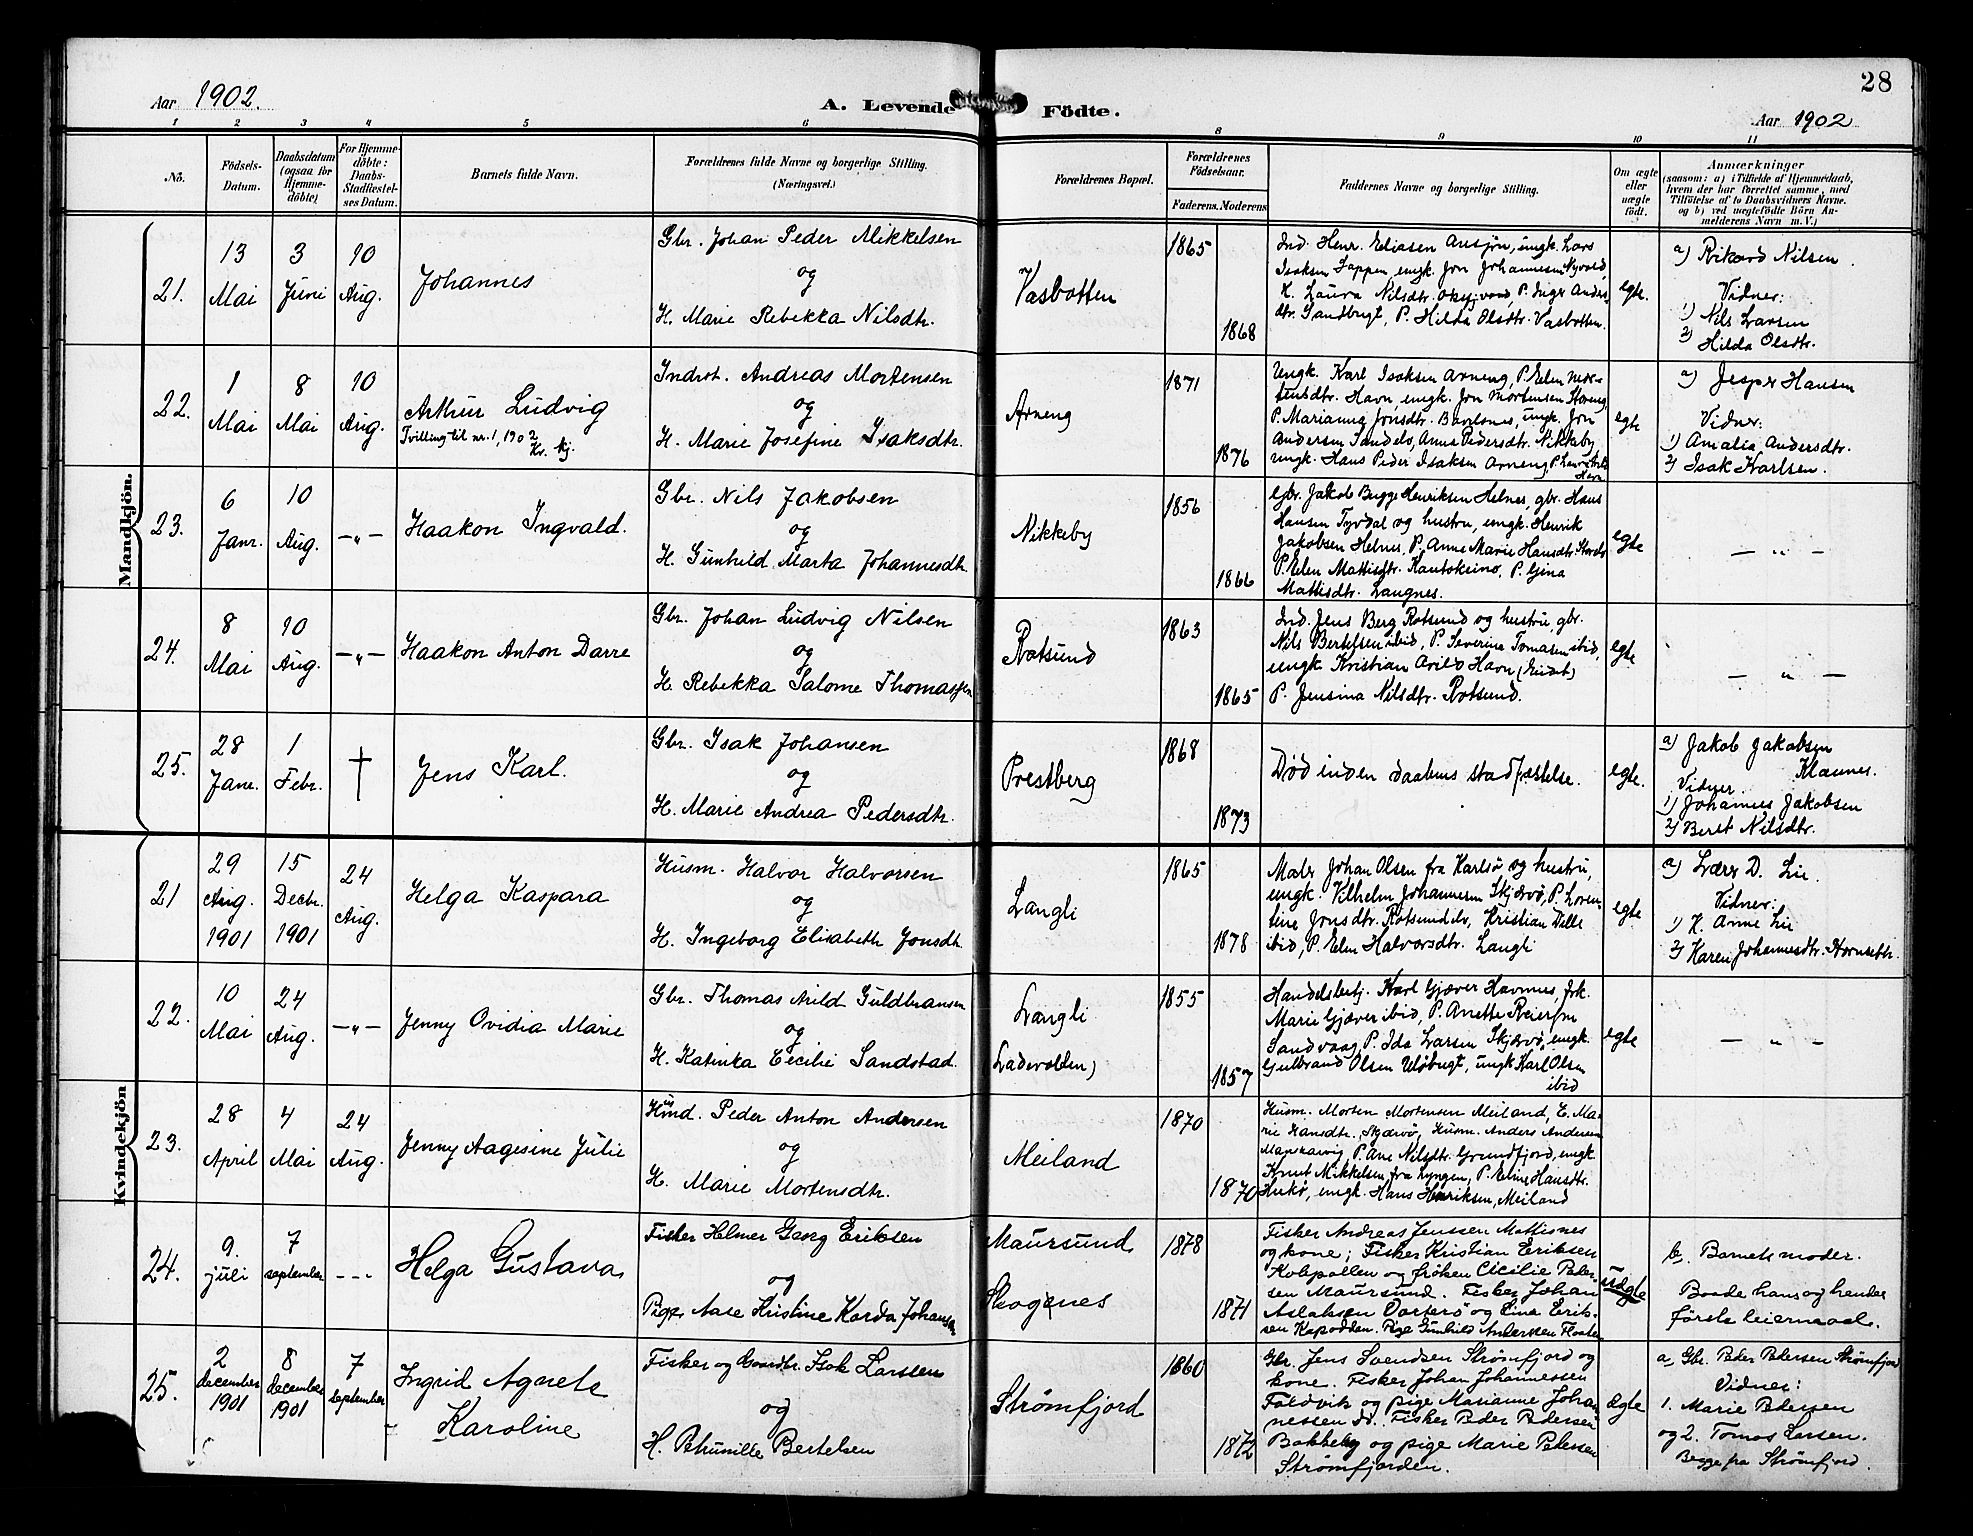 28
Aar 1902.
A. Levende Födte.
Aar 1902
1 2 3 4 5 6 8 9 10 11
No.
Födsels-
Datum.
Daabsdatum
(ogsaa for
Hjemme-
döbte)
For Hjemme-
döbte:
Daabs-
Stadfæstel-
ses Datum.
Barnets fulde Navn.
Forældrenes fulde Navne og borgerlige Stilling.
(Næringsvei.)
Forældrenes Bopæl.
Forældrenes
Födselsaar.
Faderens. Moderens.
Faddernes Navne og borgerlige Stilling.
Om ægte
eller
uægte
födt.
Anmærkninger
(saasom: a) i Tilfælde af Hjemmedaab,
hvem der har forrettet samme, med
Tilföielse af to Daabsvidners Navne.
og b) ved uægtefödte Börn An-
melderens Navn m. V.)
Mandkjön.
21.
13
Mai
3
Juni
10
Aug.
Johannes
Gbr. Johan Peder Mikkelsen
og
H. Marie Rebekka Nilsdtr.
Vasbotten
1865
1868
Ind. Henr. Eliasen Ansjøn, ungk. Lars
Isaksen Lappen, ungk. Jon Johannesen Nyvold,
K. Laura Nilsdtr. Oksfjord, P. Inger Anders
dtr. Sandbugt, P. Hilda Olsdtr. Vasbotten.
egte.
a) Rikard Nilsen.
Vidner:
1) Nils Larsen
2) Hilda Olsdtr.
22.
1
Mai
8
Mai
10
Aug.
Arthur Ludvig
Tvilling til nr. 1, 1902
Kv. kj.
Indrst. Andreas Mortensen
og
H. Marie Josefine Isaksdtr.
Arneng
1871
1876
Ungk. Karl Isaksen Arneng, P. Elen Mor-
tensdtr. Havn, ungk. Jon Mortensen Storeng,
P. Marianna Jonsdtr. Bavlsnes, ungk. Jon
Andersen Sandelv, Anna Pedersdtr. Nikkeby
ungk. Hans Peder Isaksen Arneng,
egte
a) Jesper Hansen
Vidner:
1) Amalia Andersdtr.
2) Isak Karlsen.
23.
6
Janr.
10
Aug.
—„—
Haakon Ingvald.
Gbr. Nils Jakobsen
og
H. Gunhild Marta Johannesdtr.
Nikkeby
1856
1866
Gbr. Jakob Bugge Henriksen Helnes, gbr. Hans
Hansen Tyvdal og hustru, ungk. Henrik
Jakobsen Helnes, P. Anne Marie Hansdtr.
P. Elen Mattisdtr. Kautokeino, P. Gina
Mattisdtr. Langnes.
egte
— „ —
24.
8
Mai
10
Aug.
—„—
Haakon Anton Darre
Gbr. Johan Ludvig Nilsen
og
H. Rebekka Salome Thomassen
Rotsund
1863
1865
Ind. Jens Berg Rotsund og hustru, gbr.
Nils Bertelsen ibid, P. Severine Tomasen ibid,
ungk. Kristian Arild Havn
P. Jensina Nilsdtr. Rotsund.
egte
— „ —
25.
28
Janr.
1
Febr.
†
Jens Karl.
Gbr. Isak Johansen
og
H. Marie Andrea Pedersdtr.
Prestberg
1868
1873
Død inden daabens stadfæstelse.
egte.
a) Jakob Jakobsen
Klaunes.
Vidner.
1) Johannes Jakobsen
2) Beret Nilsdtr.
Kvindekjön
21
29
Aug.
1901
15
Decbr.
1901
24
Aug.
Helga Kaspara
Husm. Halvor Halvorsen
og
H. Ingeborg Elisabeth Jonsdtr.
Langli
1865
1878
Maler Johan Olsen fra Karlsø og hustru,
ungk. Vilhelm Johannesen Skjærvø, P. Loren-
tine Jonsdtr. Rotsundelv, Kristian Dille
ibid, P. Elen Halvorsdtr. Langli
egte
a) Lærer D. Lie.
Vidner:
1) K. Anne Lie
2) Karen Johannesdtr. Hornsletn.
22.
10
Mai
24
Aug.
—„—
Jenny Ovidia Marie
Gbr. Thomas Arild Guldbransen
og
H. Katinka Cecilie Sandstad.
Langli
Ladevolden)
1855
1857
Handelsbetj. Karl Gjæver Havnnes, frk.
Marie Gjæver ibid, P. Anette Reiersen
Sandvaag, P. Ida Larsen Skjærvø, ungk.
Gulbrand Olsen Uløbugt, ungk. Karl Olsen
ibid
egte
— „ —
23.
28
April
4
Mai
24
Aug.
Jenny Aagesine Julie
Husmd. Peder Anton Andersen
og
H. Marie Mortensdtr.
Meiland
1870
1870
Husm. Morten Mortensen Meiland, E. Ma-
rie Hansdtr. Skjærvø, Husm. Anders Andersen
P. Ane Nilsdtr. Grundfjord, ungk.
Knut Mikkelsen fra Lyngen, P. Eline Hansdtr.
ungk. Hans Henriksen, Meiland
24.
9.
juli
7
september
- - -
Helga Gustava
Fisker Helmer Georg Eriksen
og
Pige Aase Kristine Karda Johansen
Maursund
Skognes
1878
1871
Fisker Andreas Jenssen Mattisnes
og kone; Fisker Kristian Eriksen
Kobpollen og frøken Cicilie Peter-
sen Maursund. Fisker Johan
Aslaksen Vorterø og Lina Erik-
sen Kapodden. Pige Gunhild Anderssen Flaaten
uægte
b, Barnets moder.
Baade hans og hendes
første leiermaal.
25.
2
december
1901
8
december
1901
7
september
Ingrid Agnete
Karoline
Fisker og Gaardbr. Isak Larssen
og
H. Petrunille Bertelsen
Strømfjord
1860
1872
Gbr. Jens Svendsen Strømfjord og
kone. Fisker Johan Johannessen
Foldvik og pige Marianne Johan-
nessen do. Fisker Peder Pedersen
Bakkeby og pige Marie Petersen
Strømfjorden.
ægte
a, Gbr. Peder Pedersen Strømfjord
Vidner:
1. Marie Pedersen
og 2. Tomas Larsen.
Begge fra Strømfjord.